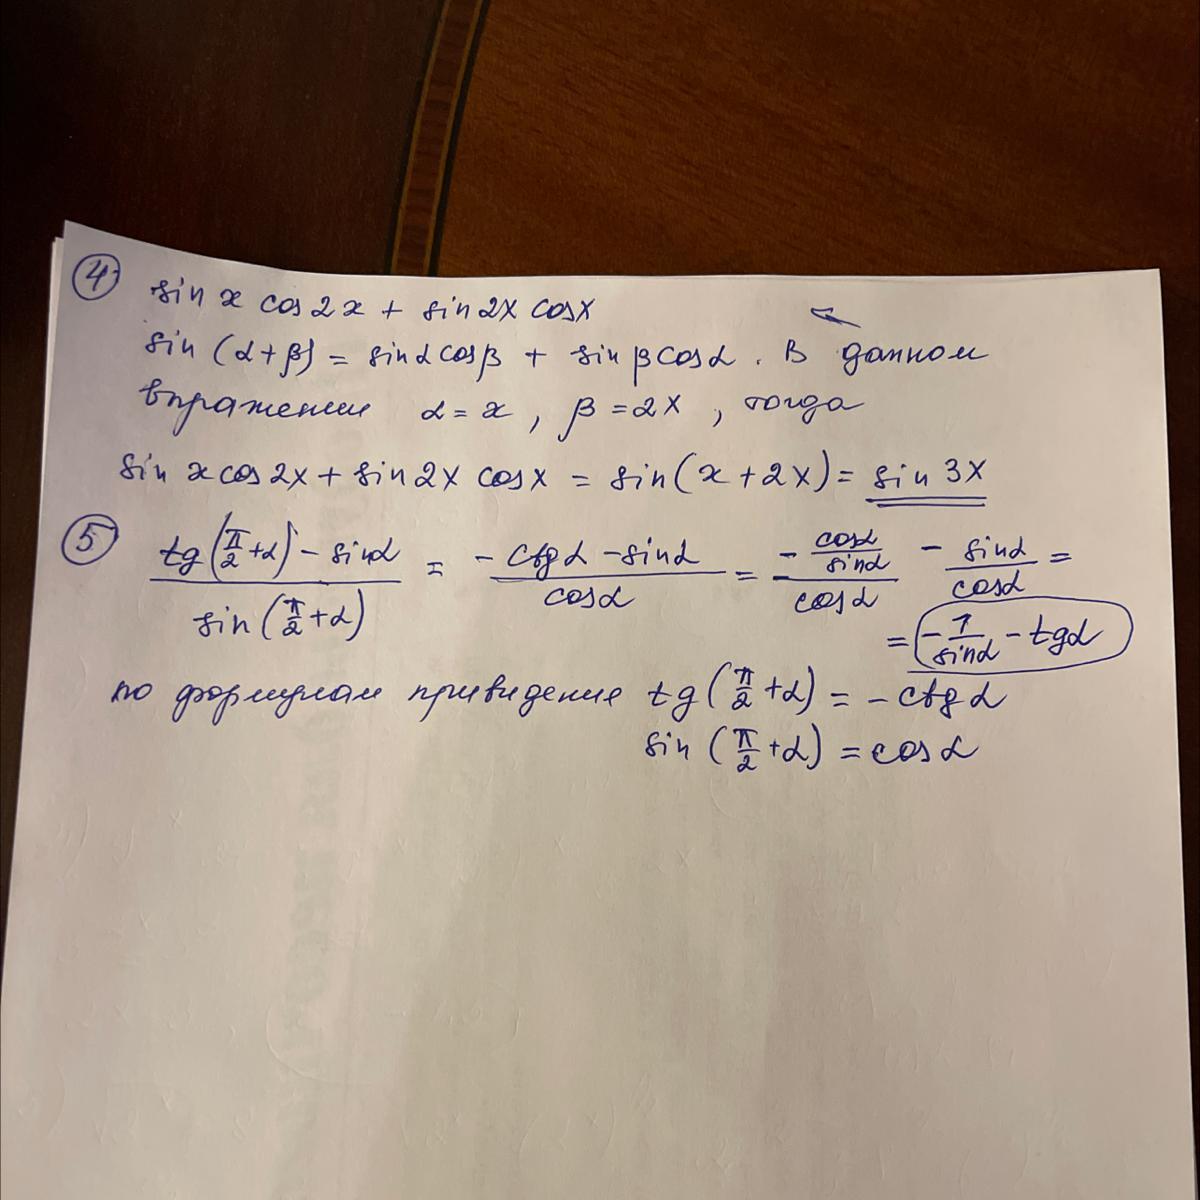 ④ sin x cos 2x + sin 2x cos x
sin (α+β) = sin α cos β + sin β cos α. В данном
выражении α = x, β = 2x, тогда
sin x cos 2x + sin 2x cos x = sin(x + 2x) = sin 3x
⑤ (tg(π/2+α) - sin α)/(sin(π/2+α)) = (-ctg α - sin α)/(cos α) = (-(cos α/sin α))/(cos α) - (sin α)/(cos α) =
= -1/sin α - tg α
по формулам привидения tg(π/2+α) = -ctg α
sin (π/2+α) = cos α